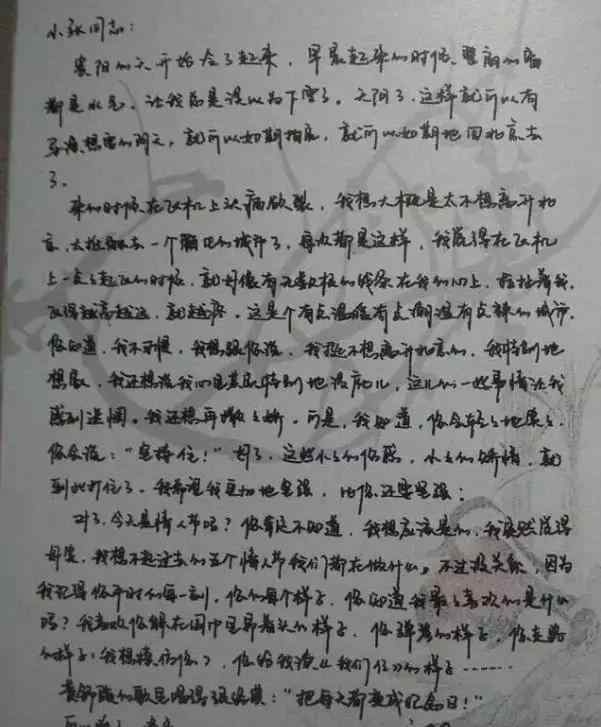 小张同志：
襄阳的天开始冷了起来，早晨起来的时候，望前的窗
都是水气，让我总是误以为下雪了。天阴了，这样就可以有
想要的阴天，就可以如期拍完，就可以如期地回北京去
了。
来的时候在飞机上头痛欲裂，我想大概是太不想离开北
京，去一个陌生的城市了，每次都是这样，我觉得在飞机
上一点点起飞的时候，就好像有无数根的线系在我的心上，拉扯着我，
飞得越高越远，就越疼。这是个有点湿有点潮湿有点辣的城市，
你知道，我不习惯，我想跟你说，我挺不想离开北京的，我特别地
想家，我还想说我的心里其实特别地没底儿，这儿的一些事情让我
感到迷惘。我还想再撒点娇。可是，我知道，你会轻轻地摇头，
你会说："坚持住！"对了，这些小小的伤感，小小的矫情，就
到此打住了。我希望我更加地坚强，比你还要坚强；
对了，今天是情人节吗？你肯定不知道，我想应该是的，我突然觉得
我想不起过去的五个情人节我们都在做什么，不过没关系，因为
我记得你平时的每一刻，你的每个样子，你知道我最喜欢的是什么
吗？我喜欢你躲在围巾里昂着头的样子，你弹琴的样子，你走路
的样子（我想模仿你），你给我读《我们仨》的样子……
黄舒骏的歌里唱得很经典："把每天都变成纪念日！"